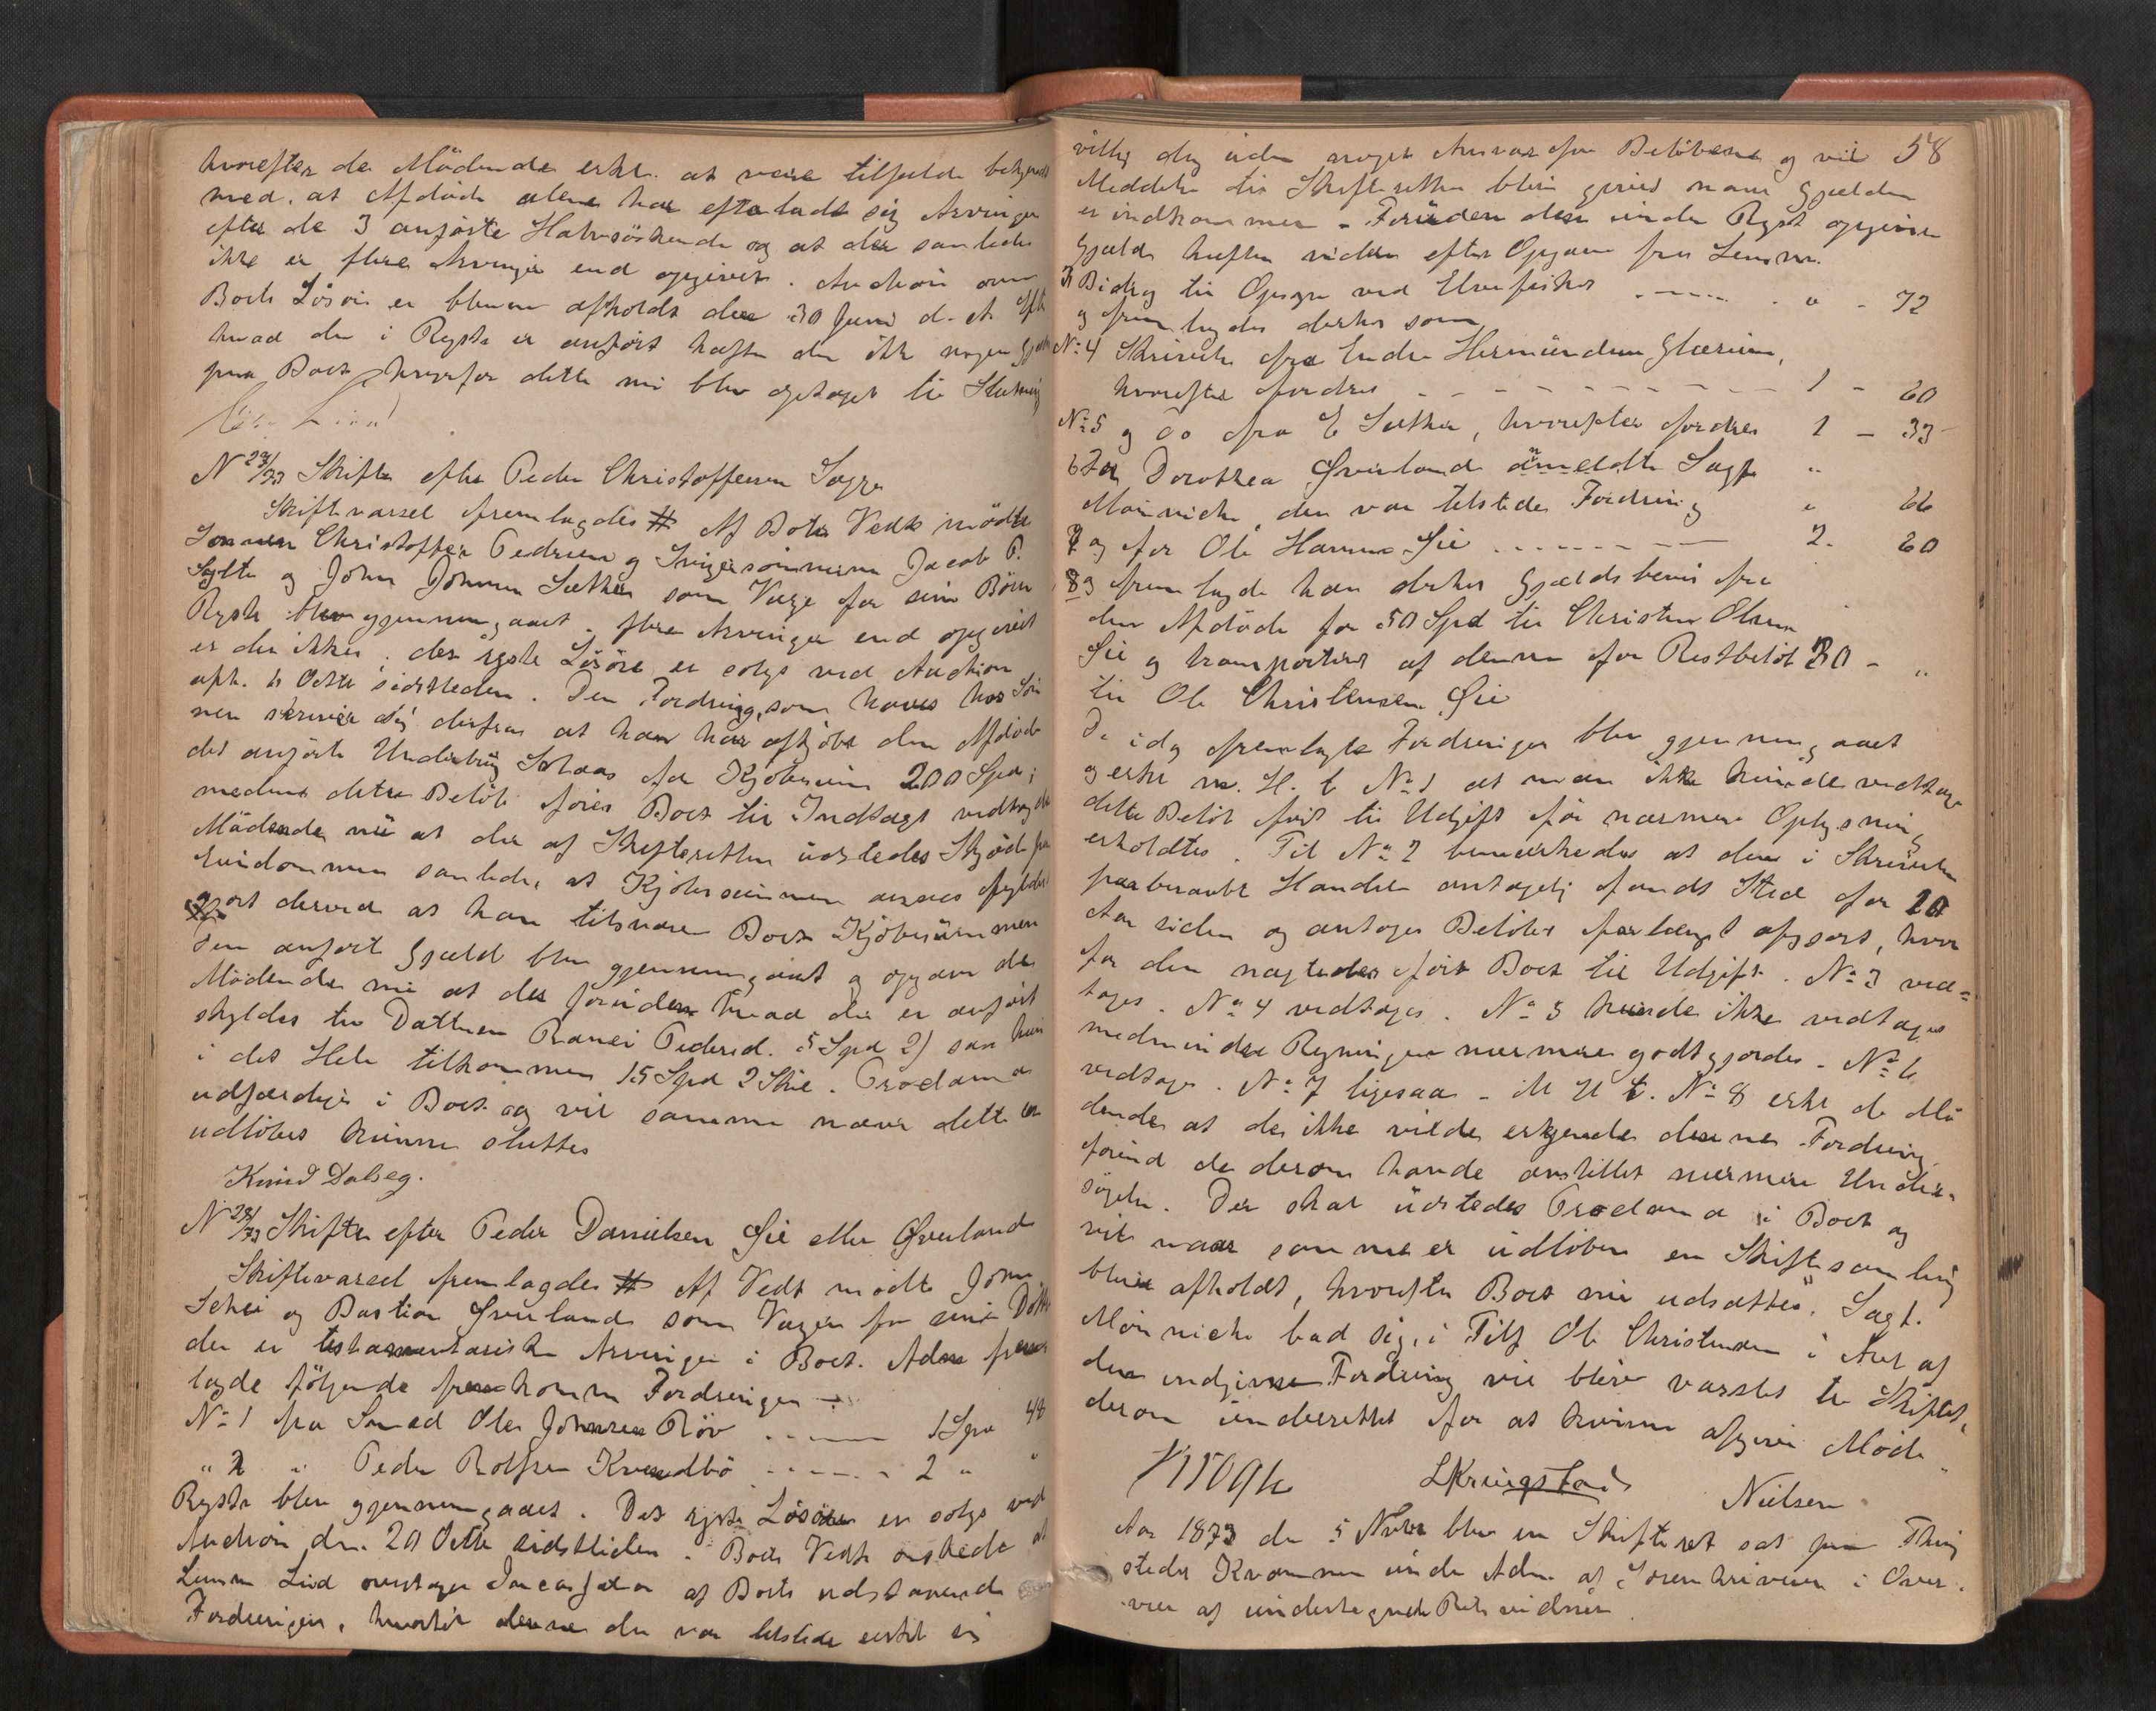 hvorefter de Mødende erkl. at være tilfulde bekjendt
med, at Afdøde alene har efterladt sig Arvinger
efter de 3 anførte Halvsøskende og at der saaledes
ikke er flere Arvinger end opgivet. Auction over
Boets Løsøre er bleven afholdt den 30 Juni d. A. Efter
hvad der i Regstr. er anført hæfter der ikke nogen Gjæld
paa Boet hvorfor dette nu blev optaget til Slutning
N 23/73 Skifte efter Peder Christoffersen Sogge
Skiftevarsel fremlagdes # Af Boets Vedk mødte
Sønnen Christoffer Pedersen og Svigersønnerne Jacob P.
Sylte og John Johnsen Sæther som Værge for sine Børn
Regstr. blev gjennemgaaet. flere Arvinger end opgivet
er der ikke; det regstr. Løsøre er solgt ved Auction
aph. 18 Octbr sidstleden. Den Fordring, som haves hos Søn
nen skriver sig derfra at han har afkjøbt den Afdøde
det anførte Underbrug for Kjøbesum 200 Spd;
medens dette Beløb føres Boet til Indtægt vedtog de
Mødende nu at der af Skifteretten udstedes Skjøde paa
Eiendommen saaledes, at Kjøbesummen ansees fyldest
gjort derved at han tilsvarer Boet Kjøbesummen
Den anførte Gjæld blev gjennemgaaet og opgav de
Mødende nu at der foruden hvad der er anført
skyldes til Datteren Ranei Pedersd. 5 Spd 2) saa hun
i det Hele tilkommer 15 Spd 2 Skil. Proclama
udfærdiges i Boet og vil samme naar dette er
udløbet kunne sluttes
Knud Dalseg.
N 28/73 Skifte efter Peder Danielsen Øie eller Øverland
Skiftevarsel fremlagdes # Af Vedk mødte John
og Bastian Øverland som Værger for sine Døttre
der er testamentariske Arvinger i Boet. Adm frem
lagde følgende fremkomne Fordringer
No 1 fra Smed Ole Johnsen Røv ..... 1 Spd 48
" 2 " Peder Rolfsen Kvendbø ..... 2 " "
Regstr blev gjennemgaaet. Det regstr Løsøre er solgt ved
Auction den 20 Octbr sidstleden. Boets Vedk ønskede at
Lensm Lied overtager Incassation af Boets udstaaende
Fordringer, hvortil denne der var tilstede erkl sig
villig dog uden noget Ansvar for Beløbene og vil 58
Meddelse til Skifteretten blive given naar Gjælden
er indkommen - Foruden den under Regst opgivne
Gjæld hefter videre efter Opgave fra Lensm.
3 Bidrag til Opsyn ved Elvefisket ..... " - 72
og fremlagdes derhos som
No 4 Skrivelse fra Endre Hermundsen Glærum,
hvorefter fordres - - - - - - 1 - 60
No 5 og do fra E Sæther, hvorefter fordres 1 - 33
6 For Dorothea Øverland anmeldte Sagf "
Mönniche, der var tilstede Fordring " 66
7 og for Ole Hansen Øie ..... 2. 60
8 og fremlagde han derhos Gjældsbevis fra
den Afdøde for 50 Spd til Christen Olsen
Øie og transporteret af denne for Restbeløb 30 - "
til Ole Christensen Øie
De idag fremlagte Fordringer blev gjennemgaaet
og erkl m. H. t No 1 at man ikke kunde vedtage
dette Beløb ført til Udgift før nærmere Oplysning
erholdtes. Til No 2 bemærkedes at den i Skrivelsen
paaberaabt Handel antagelig fandt Sted for 20
Aar siden og antages Beløbet forlængst afgjort, hvor
for den nægtedes ført Boet til Udgift. No 3 ved=
tages. No 4 vedtages. No 5 kunde ikke vedtages
medmindre Regningen nærmere godtgjordes. No 6
vedtages. No 7 ligesaa - M H t. No 8 erkl de Mø
dende at de ikke vilde erkjende denne Fordring
førend de derom havde anstillet nærmere Under=
søgelse. Der skal udstedes Proclama i Boet og
vil naar samme er udløben en Skiftesamling
blive afholdt, hvorefter Boet nu udsattes. Sagf.
Mönniche bad sig, i Tilf Ole Christensen i Anl af
den indgivne Fordring vil blive varslet til Skiftet,
derom underrettet for at kunne afgive Møde.
Krogh LKringstad Nielsen
Aar 1873 den 5 Novbr blev en Skifteret sat paa Thing
stedet Kvamme under Adm. af Sorenskriveren i Over-
vær af undertegnede Retsvidner.